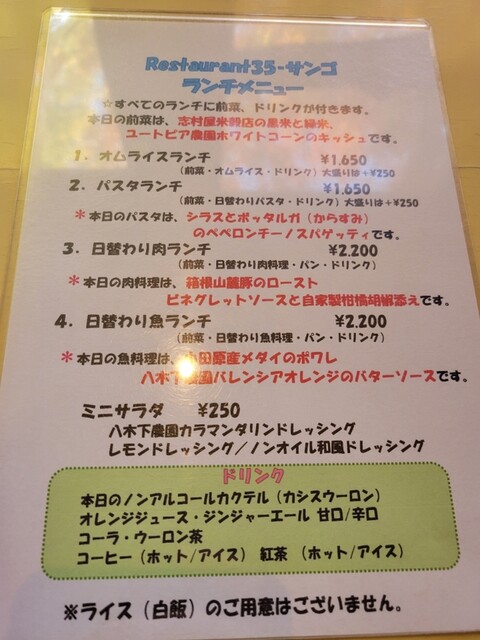 Restaurant35-サンゴ
ランチメニュー
☆すべてのランチに前菜、ドリンクが付きます。
本日の前菜は、志村屋米穀店の黒米と緑米、
ユートピア農園ホワイトコーンのキッシュです。
1．オムライスランチ ¥1,650
（前菜・オムライス・ドリンク）大盛りは＋¥250
2．パスタランチ ¥1,650
（前菜・日替わりパスタ・ドリンク）大盛りは＋¥250
＊本日のパスタは、シラスとボッタルガ（からすみ）
のペペロンチーノスパゲッティです。
3．日替わり肉ランチ ¥2.200
（前菜・日替わり肉料理・パン・ドリンク）
＊本日の肉料理は、箱根山麓豚のロースト
ビネグレットソースと自家製柑橘胡椒添えです。
4．日替わり魚ランチ ¥2.200
（前菜・日替わり魚料理・パン・ドリンク）
＊本日の魚料理は、小田原産メダイのポワレ
八木下農園バレンシアオレンジのバターソースです。
ミニサラダ ¥250
八木下農園カラマンダリンドレッシング
レモンドレッシング／ノンオイル和風ドレッシング
ドリンク
本日のノンアルコールカクテル（カシスウーロン）
オレンジジュース・ジンジャーエール 甘口/辛口
コーラ・ウーロン茶
コーヒー（ホット/アイス） 紅茶 （ホット/アイス）
※ライス（白飯）のご用意はございません。